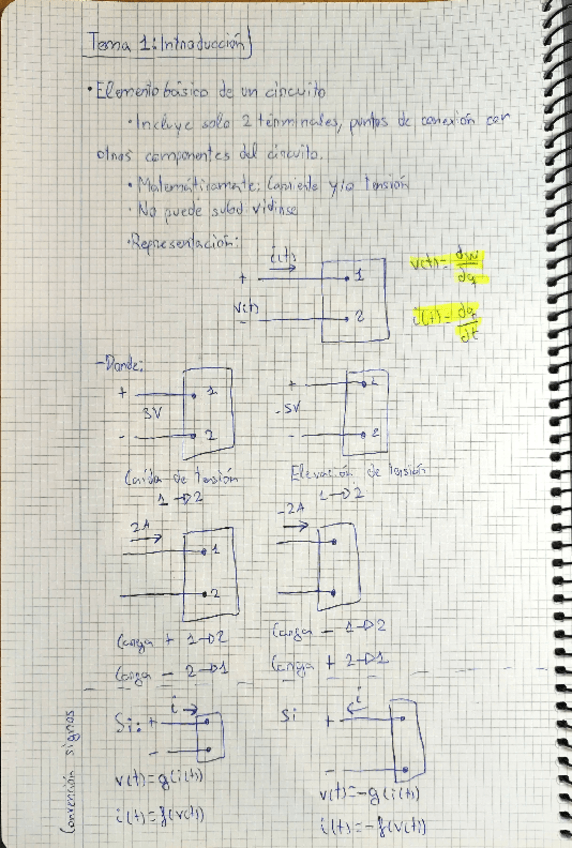 Tema 1: Introducción
• Elemento básico de un circuito
• Incluye solo 2 términales, puntos de conexión con
otros componentes del circuito.
• Matemáticamente: Corriente y/o tensión
• No puede subdividirse
• Representación:
i(t)
+ 1
v(t)
- 2
v(t)=dw/dq
i(t)=dq/dt
- Donde:
+ 1
3V
- 2
+ 1
-5V
- 2
Caída de tensión
1→2
Elevación de tensión
1→2
2A
1
2
-2A
Carga + 1→2
Carga - 2→1
Carga - 1→2
Carga + 2→1
Convención signos
Si: +
i
-
v(t)=g(i(t))
i(t)=f(v(t))
Si
+
i
-
v(t)=-g(i(t))
i(t)=-f(v(t))